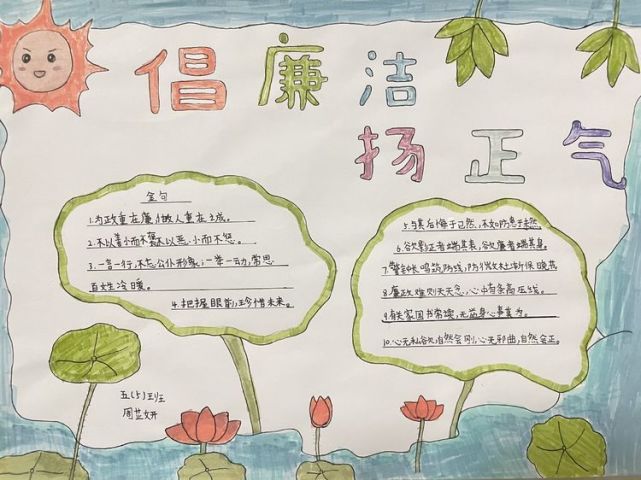 倡廉洁
扬正气
金句
1.为政重在廉,做人重在诚。
2.不以善小而不为,不以恶小而不怒。
3.一言一行,不忘公仆形象;一举一动,常思
百姓冷暖。
4.把握眼前,珍惜未来。
5.与其后悔于已然,不如防患于未然
6.欲影正者端其表,欲廉者端其身。
7.警钟长鸣筑防线,防微杜渐保晚节
8.廉政难则天天念,心中有条高压线。
9.有关家国书常读,无益身心事莫为。
10.心无私欲自然会刚,心无邪曲,自然会正。
五(5)班
周芷妍